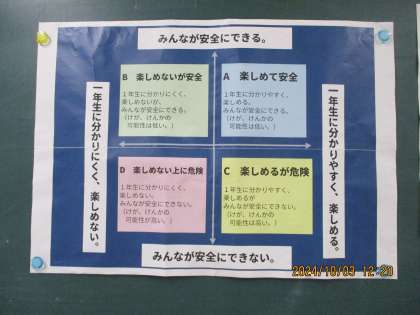 みんなが安全にできる。
一年生に分かりにくく、楽しめない。
B 楽しめないが安全
1年生に分かりにくく、
楽しめないが、
みんなが安全にできる。
(けが、けんかの
可能性は低い。)
A 楽しめて安全
1年生に分かりやすく、
楽しめる。
みんなが安全にできる。
(けが、けんかの
可能性は低い。)
D 楽しめない上に危険
1年生に分かりにくく、
楽しめない。
みんなが安全にできない。
(けが、けんかの
可能性が高い。)
C 楽しめるが危険
1年生に分かりやすく、
楽しめるが
みんなが安全にできない。
(けが、けんかの
可能性が高い。)
一年生に分かりやすく、楽しめる。
みんなが安全にできない。
2024/10/03 12:20